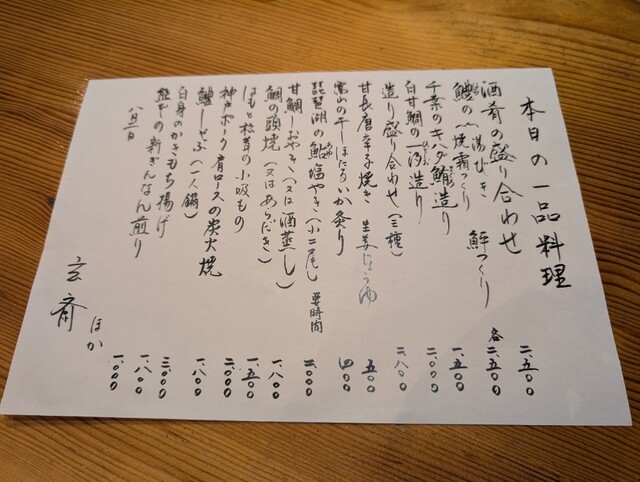 本日の一品料理
酒肴の盛り合わせ 二、五〇〇
鱧の 湯びき 焼霜つくり 鮃つくり 各二、五〇〇
千葉のキハダ鮪造り 一、五〇〇
白甘鯛の一汐造り 二、〇〇〇
造り盛り合わせ(三種) 二、八〇〇
甘長唐辛子焼き 生姜じょうゆ 五〇〇
富山の干しほたるいか炙り 四〇〇
琵琶湖の鮎塩やき(小二尾) 要時間 二、〇〇〇
甘鯛しおやき(又は酒蒸し) 一、八〇〇
鯛の頭焼(又はあらだき) 一、五〇〇
はもと松茸の小吸もの 二、〇〇〇
神戸ポーク肩ロースの炭火焼 一、八〇〇
鱧しゃぶ(一人鍋) 三、〇〇〇
白身のかきもち揚げ 一、八〇〇
の新ぎんなん煎り 一、〇〇〇
ほか
八月一日
玄斎